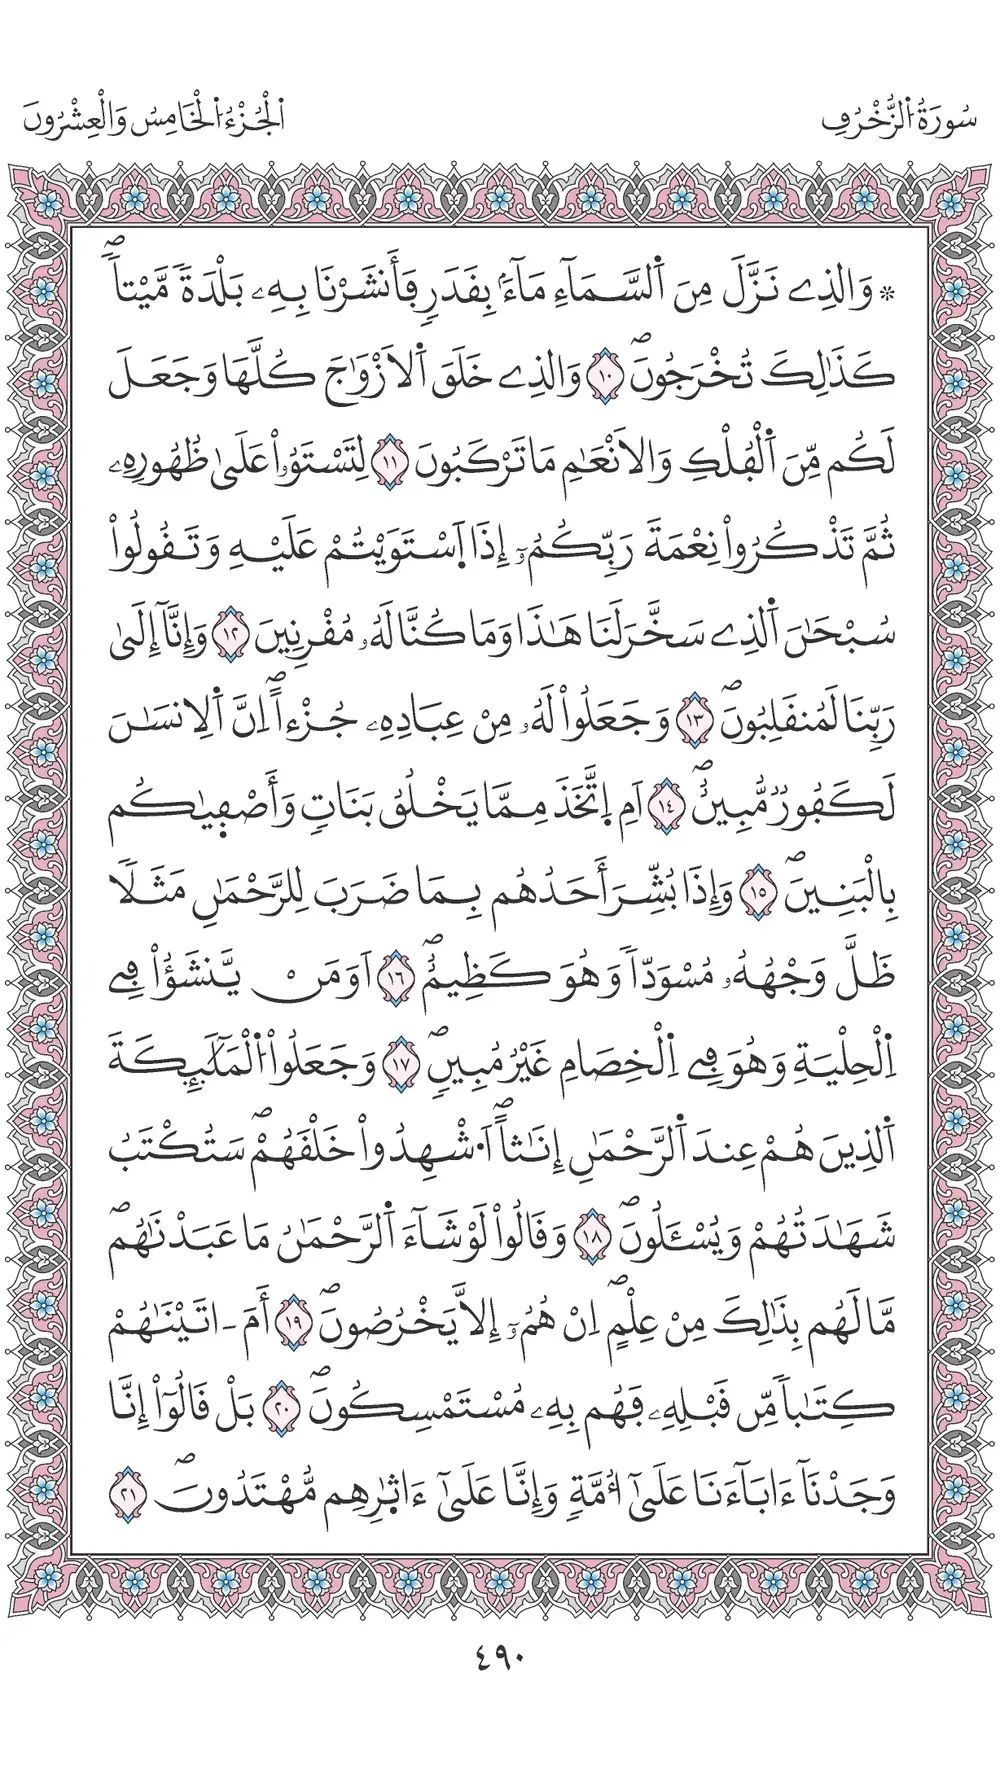 سُورَةُ اُ۬لزُّخْرُفِ
اَ۬لْجُزْءُ اُ۬لْخَامِسُ وَالْعِشْرُونَ
* وَالذِے نَزَّلَ مِنَ اَ۬لسَّمَآءِ مَآءَۢ بِقَدَرٖ فَأَنشَرْنَا بِهِۦ بَلْدَةٗ مَّيْتاٗۖ
كَذَٰلِكَ تُخْرَجُونَۖ ١٠ وَالذِے خَلَقَ اَ۬لَازْوَٰجَ كُلَّهَا وَجَعَلَ
لَكُم مِّنَ اَ۬لْفُلْكِ وَالَانْعَٰمِ مَا تَرْكَبُونَ ١١ لِتَسْتَوُۥاْ عَلَىٰ ظُهُورِهِۦ
ثُمَّ تَذْكُرُواْ نِعْمَةَ رَبِّكُمُۥٓ إِذَا اَ۪سْتَوَيْتُمْ عَلَيْهِ وَتَقُولُواْ
سُبْحَٰنَ اَ۬لذِے سَخَّرَ لَنَا هَٰذَا وَمَا كُنَّا لَهُۥ مُقْرِنِينَ ١٢ وَإِنَّآ إِلَىٰ
رَبِّنَا لَمُنقَلِبُونَۖ ١٣ وَجَعَلُواْ لَهُۥ مِنْ عِبَادِهِۦ جُزْءاًۖ اِنَّ اَ۬لِانسَٰنَ
لَكَفُورٞ مُّبِينٌۖ ١٤ اَمِ اِ۪تَّخَذَ مِمَّا يَخْلُقُ بَنَاتٖ وَأَصْفِيٰكُم
بِالْبَنِينَۖ ١٥ وَإِذَا بُشِّرَ أَحَدُهُم بِمَا ضَرَبَ لِلرَّحْمَٰنِ مَثَلاٗ
ظَلَّ وَجْهُهُۥ مُسْوَدّاٗ وَهُوَ كَظِيمٌۖ ١٦ اَوَمَنْ يَّنشَؤُاْ فِے
اِ۬لْحِلْيَةِ وَهُوَ فِے اِ۬لْخِصَامِ غَيْرُ مُبِينٖۖ ١٧ وَجَعَلُواْ اُ۬لْمَلَٰٓئِكَةَ
اَ۬لذِينَ هُمْ عِندَ اَ۬لرَّحْمَٰنِ إِنَٰثاًۖ اَ۟شْهِدُواْ خَلْقَهُمْۖ سَتُكْتَبُ
شَهَٰدَتُهُمْ وَيُسْـَٔلُونَۖ ١٨ وَقَالُواْ لَوْ شَآءَ اَ۬لرَّحْمَٰنُ مَا عَبَدْنَٰهُمۖ
مَّا لَهُم بِذَٰلِكَ مِنْ عِلْمٍۖ اِنْ هُمُۥٓ إِلَّا يَخْرُصُونَۖ ١٩ أَمَ اٰتَيْنَٰهُمْ
كِتَٰباٗ مِّن قَبْلِهِۦ فَهُم بِهِۦ مُسْتَمْسِكُونَۖ ٢٠ بَلْ قَالُوٓاْ إِنَّا
وَجَدْنَآ ءَابَآءَنَا عَلَىٰٓ أُمَّةٖ وَإِنَّا عَلَىٰٓ ءَاثٰ۪رِهِم مُّهْتَدُونَۖ ٢١
٤٩٠